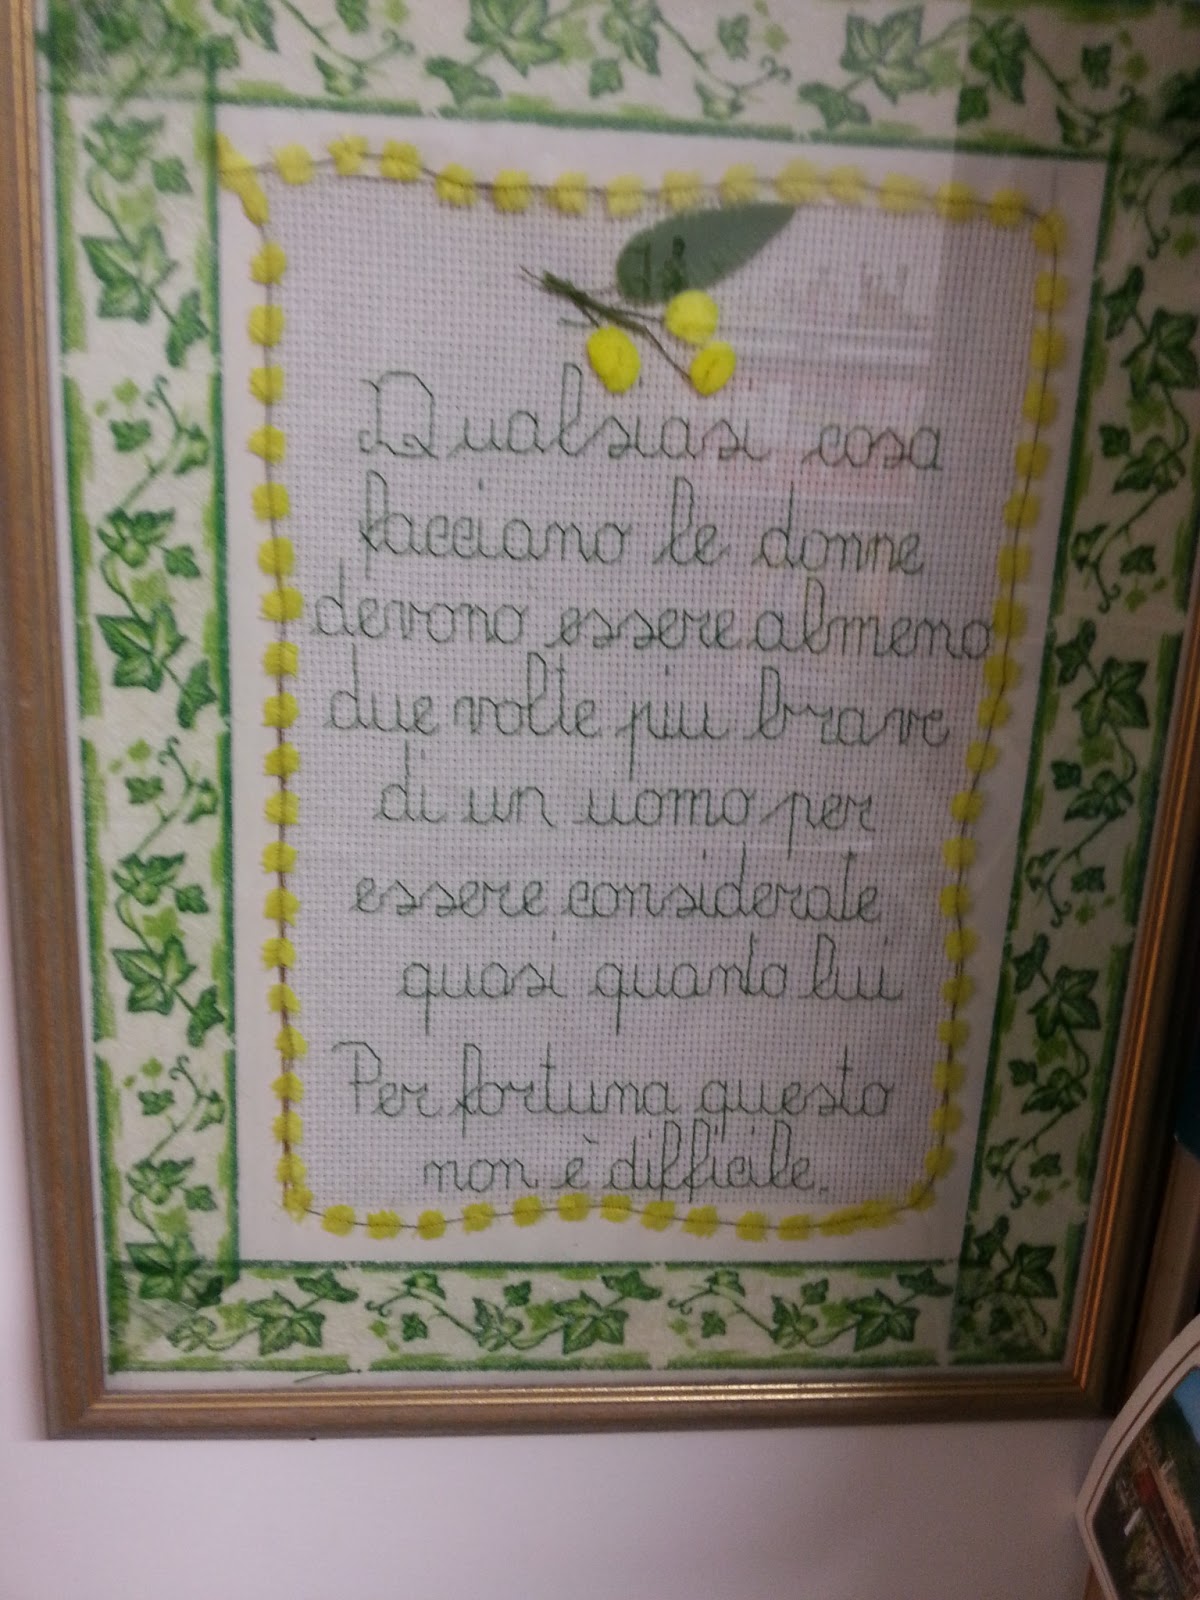 Qualsiasi cosa
facciano le donne
devono essere almeno
due volte più brave
di un uomo per
essere considerate
quasi quanto lui
Per fortuna questo
non è difficile.